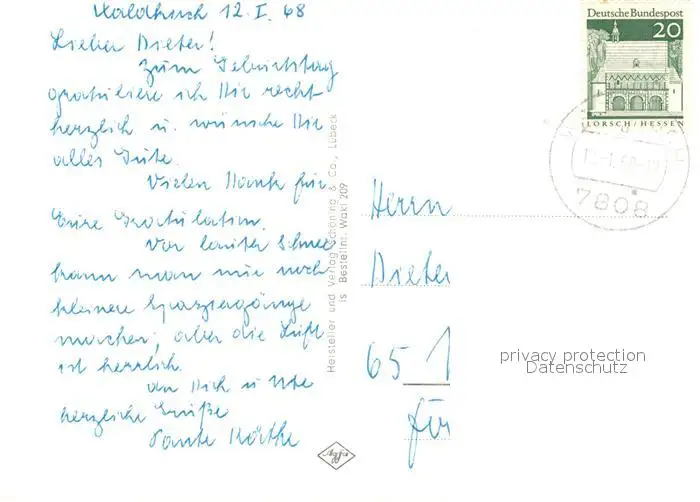 Waldkirch 12. I. 68
Lieber Dieter!
Zum Geburtstag
gratuliere ich Dir recht
herzlich u. wünsche Dir
alles Gute.
Vielen Dank für
Eure Gratulation.
Vor lauter Schnee
kann man nur noch
kleinere Spaziergänge
machen, aber die Luft
ist herrlich.
An Dich u Ute
herzliche Grüße
Tante Käthe
Hersteller und Verlag Schöning & Co., Lübeck
is Bestellnr. Wakl 209
Agfa
Deutsche Bundespost
20
LORSCH/HESSEN
7808
Herrn
Dieter
65 1
für
privacy protection
Datenschutz